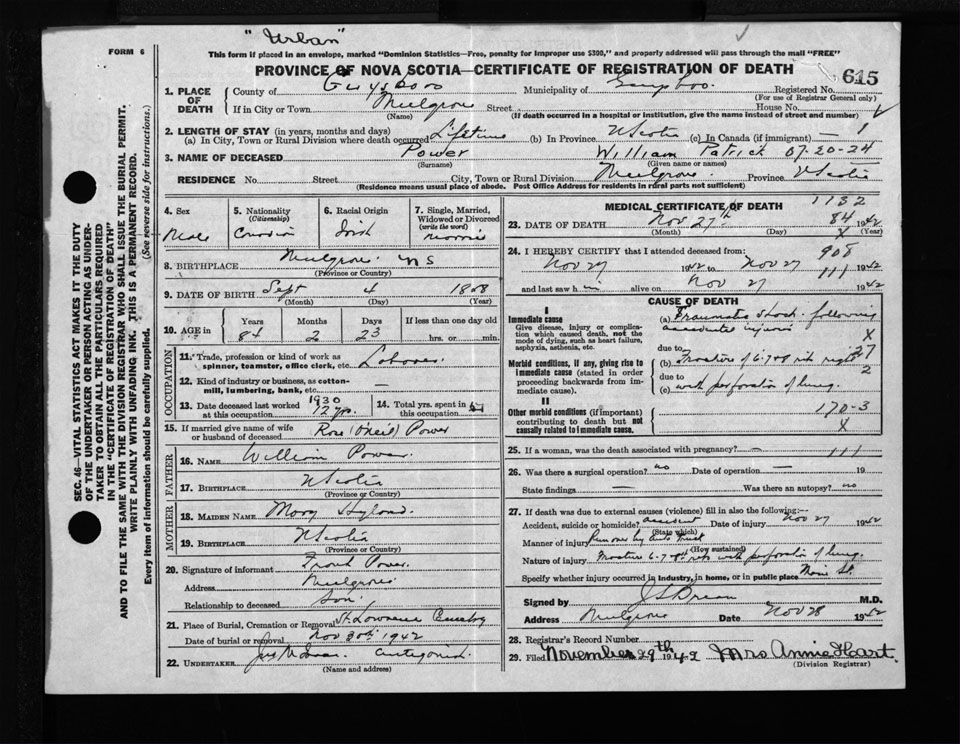 "Urban"
FORM 6
This form if placed in an envelope, marked "Dominion Statistics—Free, penalty for improper use $300," and properly addressed will pass through the mail "FREE"
PROVINCE OF NOVA SCOTIA—CERTIFICATE OF REGISTRATION OF DEATH
615
1. PLACE OF DEATH
County of Guysboro Municipality of Registered No.
(For use of Registrar General only)
If in City or Town Mulgrave Street House No.
(Name) (If death occurred in a hospital or institution, give the name instead of street and number)
2. LENGTH OF STAY (in years, months and days)
(a) In City, Town or Rural Division where death occurred Lifetime (b) In Province N Scotia (c) In Canada (if immigrant) —
3. NAME OF DECEASED Power William Patrick 07-20-24
(Surname) (Given name or names)
RESIDENCE No. Street City, Town or Rural Division Mulgrave Province N Scotia
(Residence means usual place of abode. Post Office Address for residents in rural parts not sufficient)
4. Sex
Male
5. Nationality (Citizenship)
6. Racial Origin
Irish
7. Single, Married, Widowed or Divorced (write the word)
8. BIRTHPLACE Mulgrave NS
(Province or Country)
9. DATE OF BIRTH Sept 4 1858
(Month) (Day) (Year)
10. AGE in Years Months Days If less than one day old
84 2 23 hrs. or min.
OCCUPATION
11. Trade, profession or kind of work as spinner, teamster, office clerk, etc. Labourer
12. Kind of industry or business, as cotton-mill, lumbering, bank, etc. —
13. Date deceased last worked at this occupation 1930 12 yrs.
14. Total yrs. spent in this occupation
15. If married give name of wife or husband of deceased Rose (O'neil) Power
FATHER
16. NAME William Power
17. BIRTHPLACE N Scotia
(Province or Country)
MOTHER
18. MAIDEN NAME Mary Hyland
19. BIRTHPLACE N Scotia
(Province or Country)
20. Signature of informant Frank Power
Address Mulgrave
Relationship to deceased Son
21. Place of Burial, Cremation or Removal St. Lawrence Cemetery
Date of burial or removal Nov 30th 1942
22. UNDERTAKER Antigonish
(Name and address)
MEDICAL CERTIFICATE OF DEATH
1132
23. DATE OF DEATH Nov 27th 84 1942
(Month) (Day) X (Year)
24. I HEREBY CERTIFY that I attended deceased from: 908
Nov 27 1942 to Nov 27 1942
111
and last saw him alive on Nov 27 1942
CAUSE OF DEATH
I
Immediate cause
Give disease, injury or complication which caused death, not the mode of dying, such as heart failure, asphyxia, asthenia, etc.
(a) Traumatic shock following
accidental injuries X
due to 27
Morbid conditions, if any, giving rise to immediate cause (stated in order proceeding backwards from immediate cause).
(b) Fracture of 6-7-8th rib right 2
due to
(c) with perforation of lung.
II
Other morbid conditions (if important) contributing to death but not causally related to immediate cause.
170-3
X
25. If a woman, was the death associated with pregnancy? — 111
26. Was there a surgical operation? no Date of operation — 19
State findings — Was there an autopsy? no
27. If death was due to external causes (violence) fill in also the following:—
Accident, suicide or homicide? accident Date of injury Nov 27 1942
(State which)
Manner of injury Run over by auto truck
(How sustained)
Nature of injury Fracture 6-7-8th ribs with perforation of lung.
Specify whether injury occurred in industry, in home, or in public place Main St.
Signed by M.D.
Address Mulgrave Nov 28 1942
28. Registrar's Record Number
29. Filed November 29th 1942 Mrs Annie Hart.
(Division Registrar)
SEC. 46—VITAL STATISTICS ACT MAKES IT THE DUTY
OF THE UNDERTAKER OR PERSON ACTING AS UNDER-
TAKER TO OBTAIN ALL THE PARTICULARS REQUIRED
IN THE "CERTIFICATE OF REGISTRATION OF DEATH"
AND TO FILE THE SAME WITH THE DIVISION REGISTRAR WHO SHALL ISSUE THE BURIAL PERMIT.
WRITE PLAINLY WITH UNFADING INK. THIS IS A PERMANENT RECORD.
Every item of information should be carefully supplied. (See reverse side for instructions.)